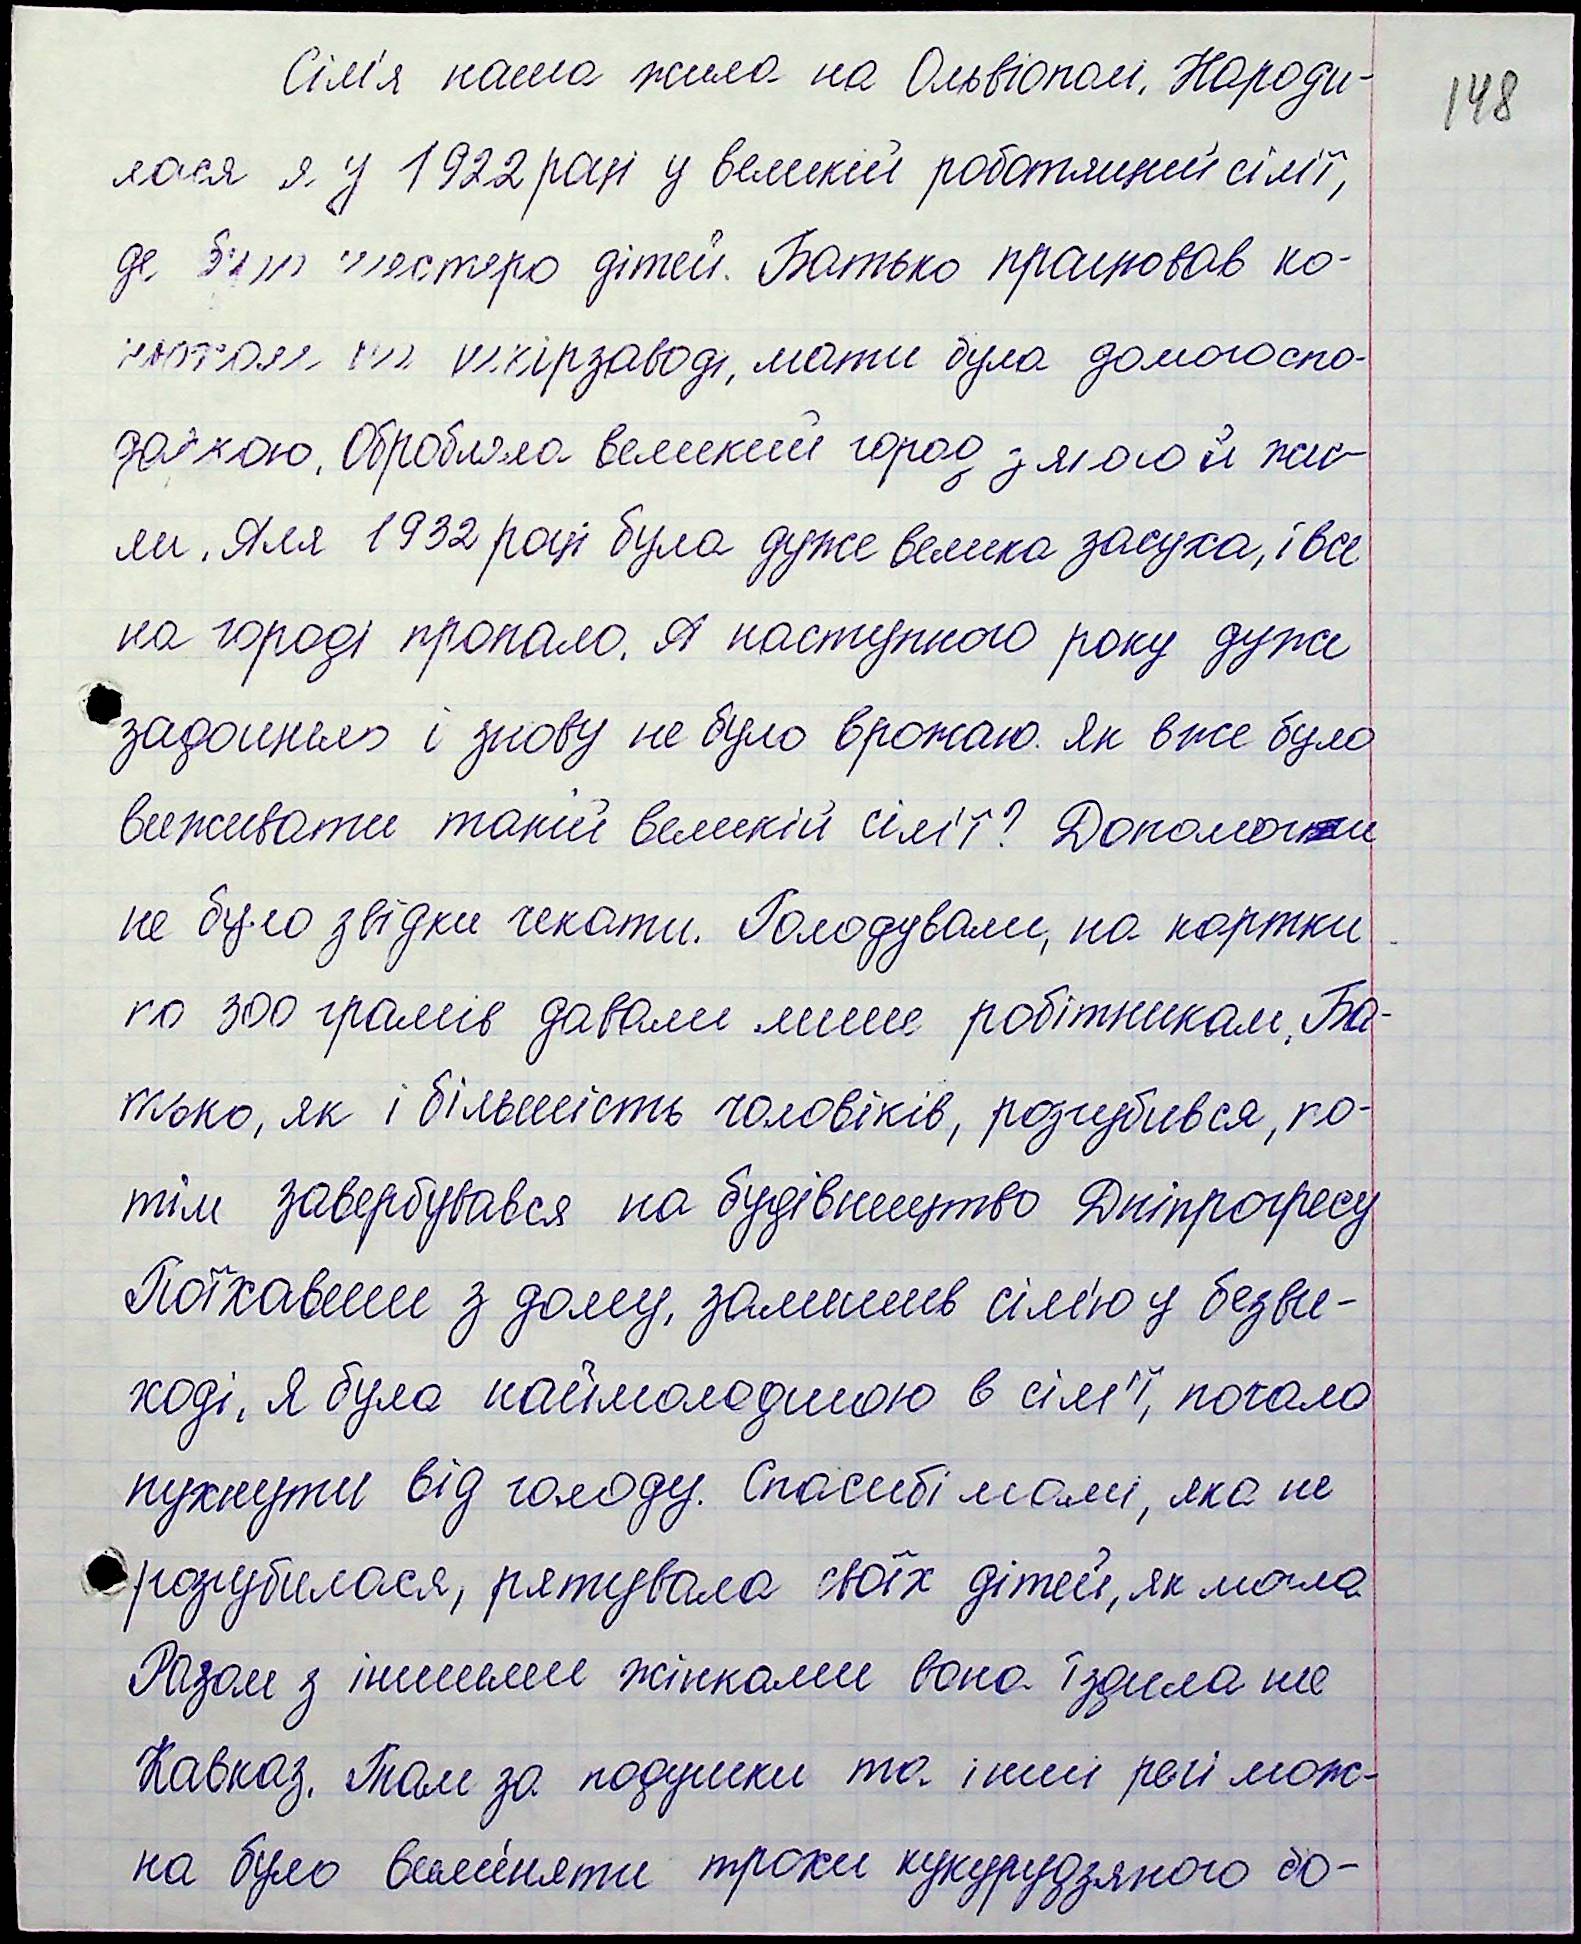 Сім'я наша жила на Ольвіополі. Народи-
148
лася я у 1922 році у великій роботящій сім'ї,
де було шестеро дітей. Батько працював ко-
на шкірзаводі, мати була домогоспо-
даркою. Обробляла великий город, з якого й жи-
ли. Але 1932 році була дуже велика засуха, і все
на городі пропало. А наступного року дуже
задощило і знову не було врожаю. Як вже було
виживати такій великій сім'ї? Допомоги
не було звідки чекати. Голодували, на картки
по 300 грамів давали лише робітникам. Ба-
тько, як і більшість чоловіків, розгубився, по-
тім завербувався на будівництво Дніпрогресу
Поїхавши з дому, залишив сім'ю у безви-
ході. Я була наймолодшою в сім'ї, почала
пухнути від голоду. Спасибі мамі, яка не
розгубилася, рятувала своїх дітей, як могла
Разом з іншими жінками вона їздила на
Кавказ. Там за подушки та інші речі мож-
на було виміняти трохи кукурудзяного бо-